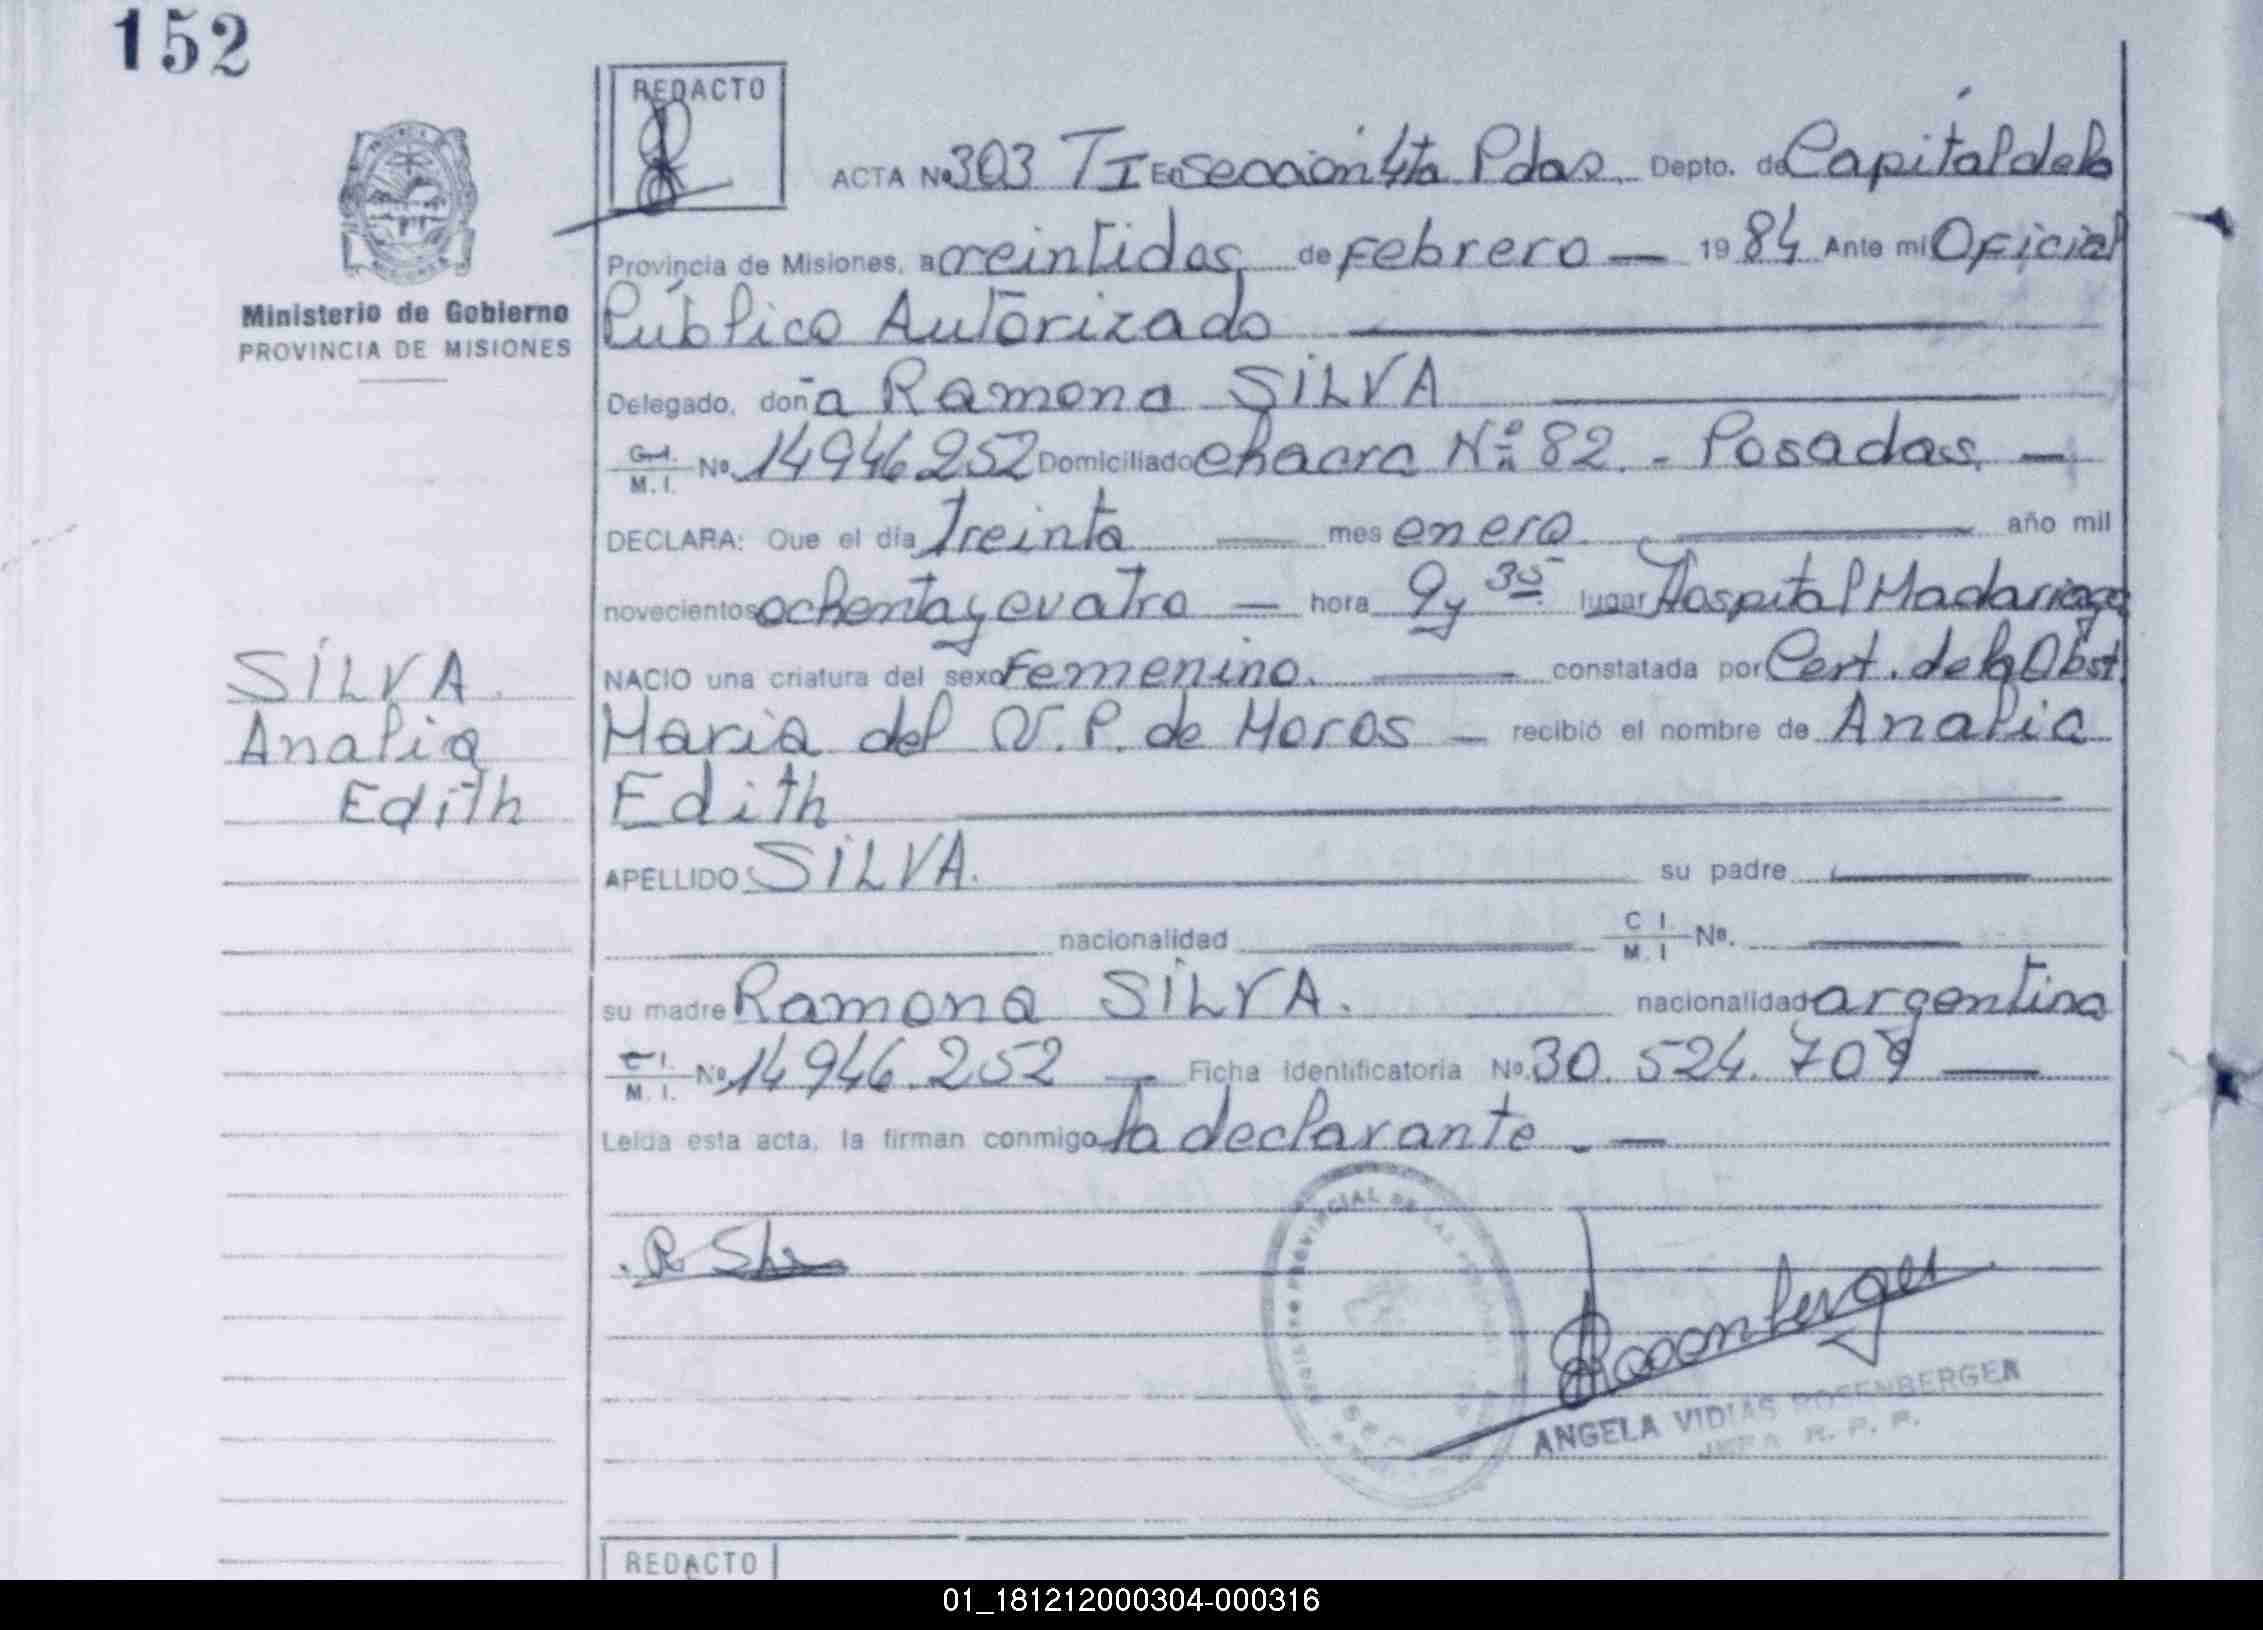 152
REDACTO
ACTA Nº 303 TI En Sección 4ta Pdas. Depto. de Capital de la
Provincia de Misiones, a veintidos de Febrero — 1984 Ante mi Oficial
Público Autorizado
Ministerio de Gobierno
PROVINCIA DE MISIONES
Delegado, doña Ramona SILVA
C.I. M.I. Nº 14946252 Domiciliado chacra Nº 82. - Posadas. —
DECLARA: Que el día Treinta — mes enero. — año mil
novecientos ochenta y cuatro — hora 9 y 35. lugar Hospital Madariaga
NACIO una criatura del sexo Femenino. — constatada por Cert. de la Obst.
María del V. P. de Moros — recibió el nombre de Analia
Edith
SILVA.
Analia
Edith
APELLIDO SILVA. — su padre —
nacionalidad — C I. M. I Nº. —
su madre Ramona SILVA. nacionalidad argentina
C I. M. I. Nº 14946.252 — Ficha identificatoria Nº 30.524.709 —
Leida esta acta, la firman conmigo la declarante. —
R Silva
REGISTRO PROVINCIAL DE LAS PERSONAS
Rosenberger
ANGELA VIDIAS ROSENBERGER
JEFA R. P. P.
REDACTO
01_181212000304-000316